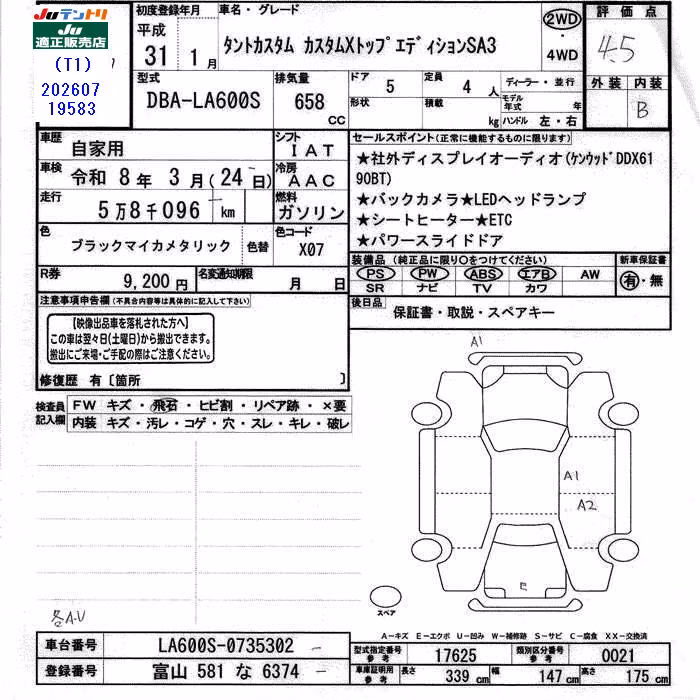 JUテントリ
JU
適正販売店
(T1)
202607
19583
初度登録年月
平成
31 1 月
車名・グレード
タントカスタム カスタムXトップエディションSA3
2WD
・
4WD
評価点
4.5
外装 内装
B
型式
DBA-LA600S
排気量
658
CC
ドア 5
定員 4 人
形状
積載 kg
ディーラー・並行
モデル年式 年
ハンドル 左・右
車歴 自家用
シフト IAT
車検 令和 8 年 3 月(24 日)
冷房 AAC
走行 5万8千096 km
燃料 ガソリン
色 ブラックマイカメタリック 色替
色コード X07
R券 9,200円
名変通知期限 月 日
セールスポイント(正常に機能するものに限ります)
★社外ディスプレイオーディオ(ケンウッドDDX61
90BT)
★バックカメラ★LEDヘッドランプ
★シートヒーター★ETC
★パワースライドドア
装備品(純正品に限り○をつけてください)
新車保証書
PS PW ABS エアB AW
SR ナビ TV カワ
有・無
後日品
保証書・取説・スペアキー
注意事項申告欄(不具合内容等は具体的に記入して下さい)
【映像出品車を落札された方へ】
この車は翌々日(土曜日)から搬出できます。
搬出にご来場・ご手配の際はご注意ください。
修復歴 有〔箇所 〕
検査員記入欄
FW キズ・飛石・ヒビ割・リペア跡・×要
内装 キズ・汚レ・コゲ・穴・スレ・キレ・破レ
A1
A1
A2
E
スペア
各A.U
A−キズ E−エクボ U−凹み W−補修跡 S−サビ C−腐食 XX−交換済
車台番号 LA600S-0735302
登録番号 富山 581 な 6374
型式指定番号 参考 17625
類別区分番号 参考 0021
車庫証明用 参考
長さ 339 cm
幅 147 cm
高さ 175 cm